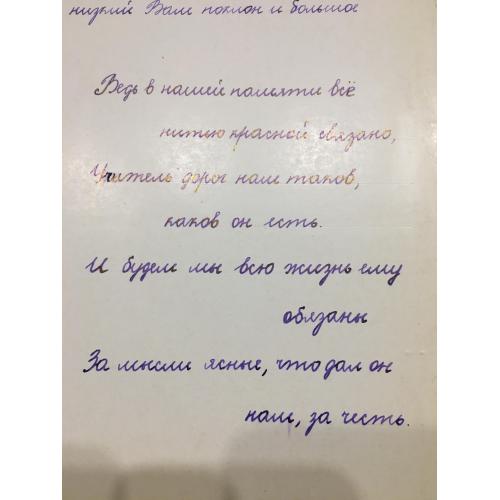 низкий Вам поклон и большое
Ведь в нашей памяти всё
нитью красной связано,
Учитель дорог нам таков,
каков он есть.
И будем мы всю жизнь ему
обязаны
За мысли ясные, что дал он
нам, за честь.